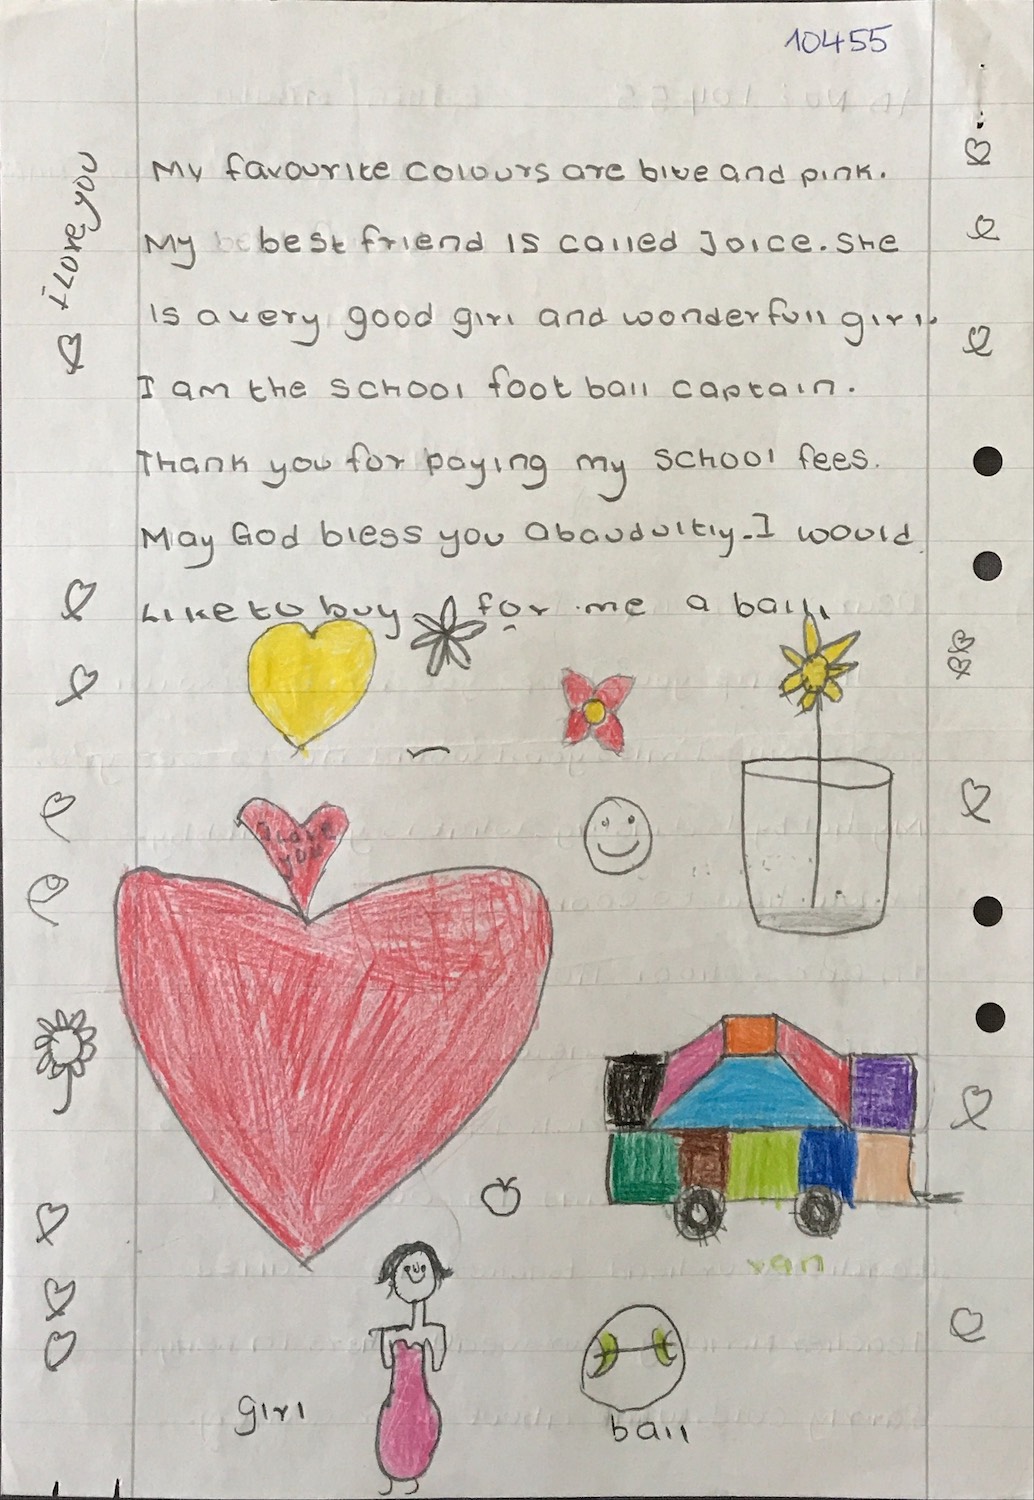 10455
i Love you
My favourite colours are blue and pink.
My best friend is called Joice. She
is a very good girl and wonderfull girl.
I am the school foot ball captain.
Thank you for paying my school fees.
May God bless you Abaudultiy. I would
Like to buy for me a ball
I love
you
van
girl
ball